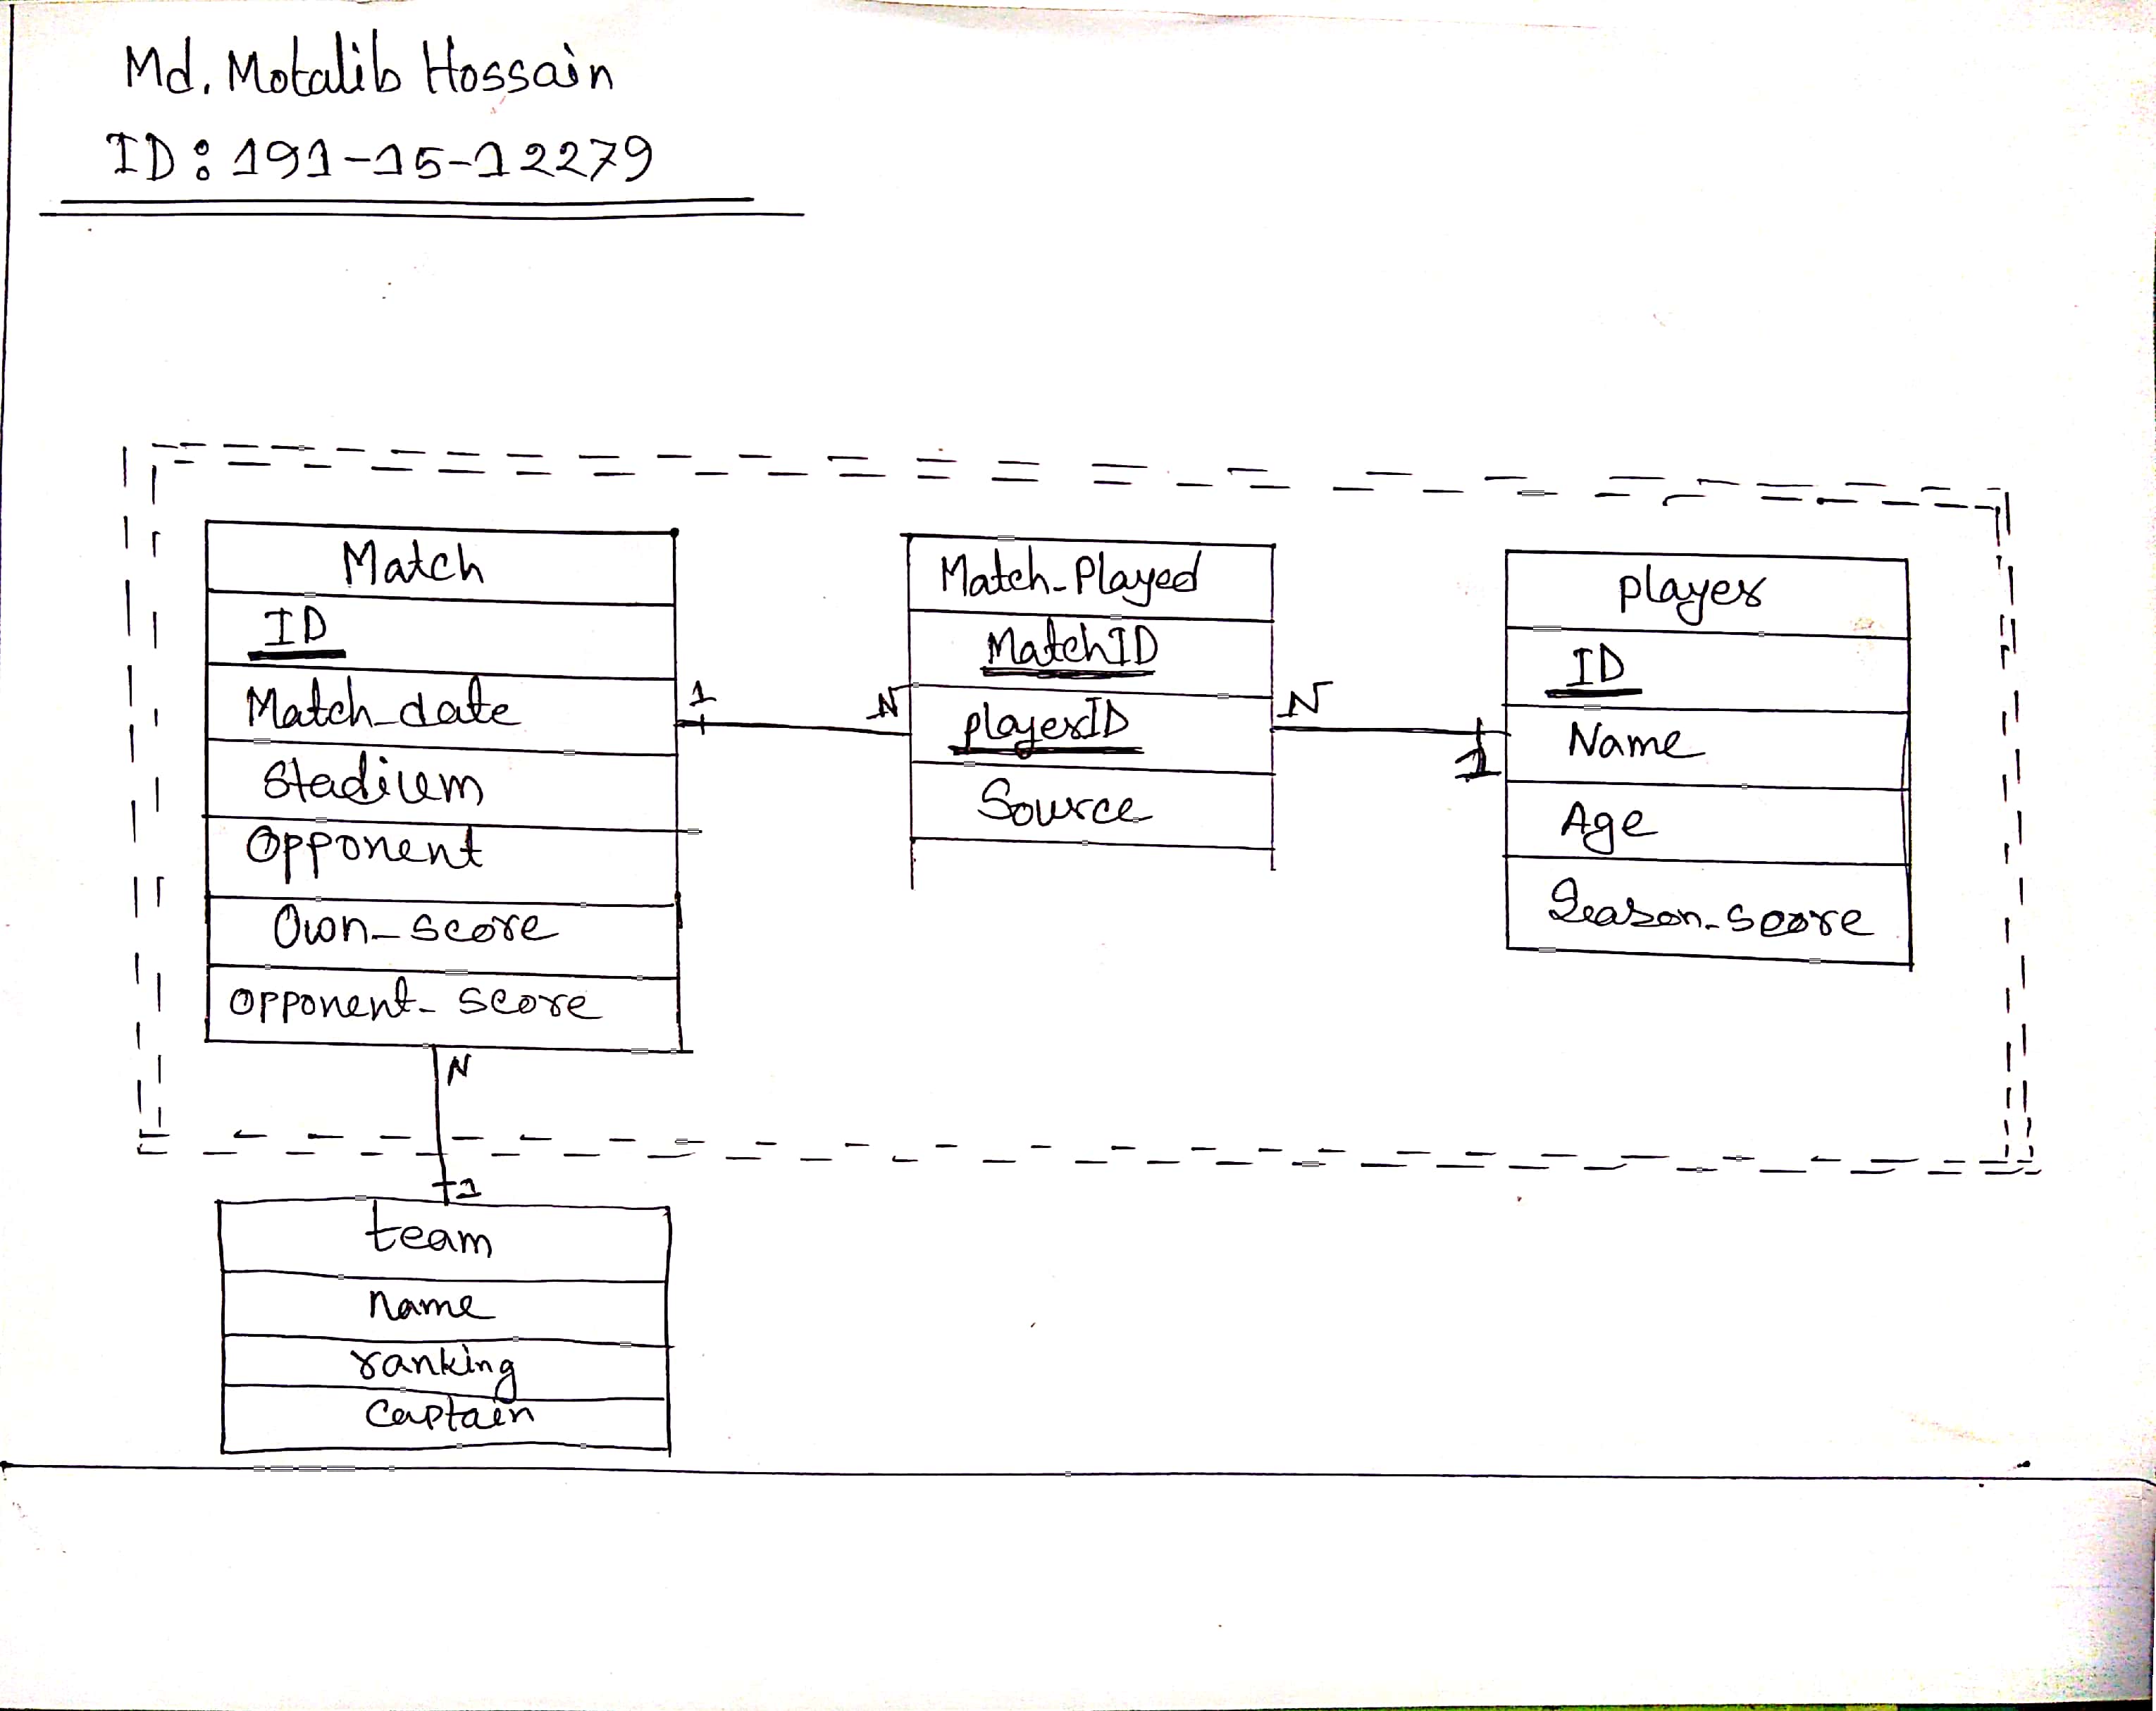 Md. Motalib Hossain
ID: 191-15-12279
Match
ID
Match_date
Stadium
Opponent
Own_score
opponent_score
1
N
Match_Played
MatchID
playerID
Source
N
1
player
ID
Name
Age
Season_score
N
1
team
name
ranking
Captain